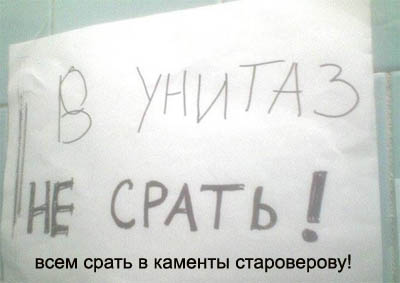 В УНИТАЗ
НЕ СРАТЬ!
всем срать в каменты староверову!